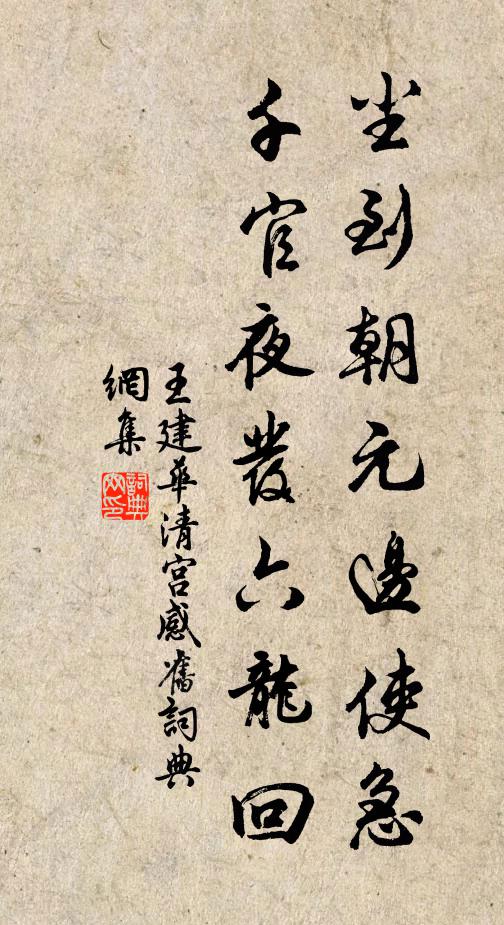 尘到朝元邊使急
千官夜發六龍回
王建華清宮感舊詞典
網集
詞典
网印